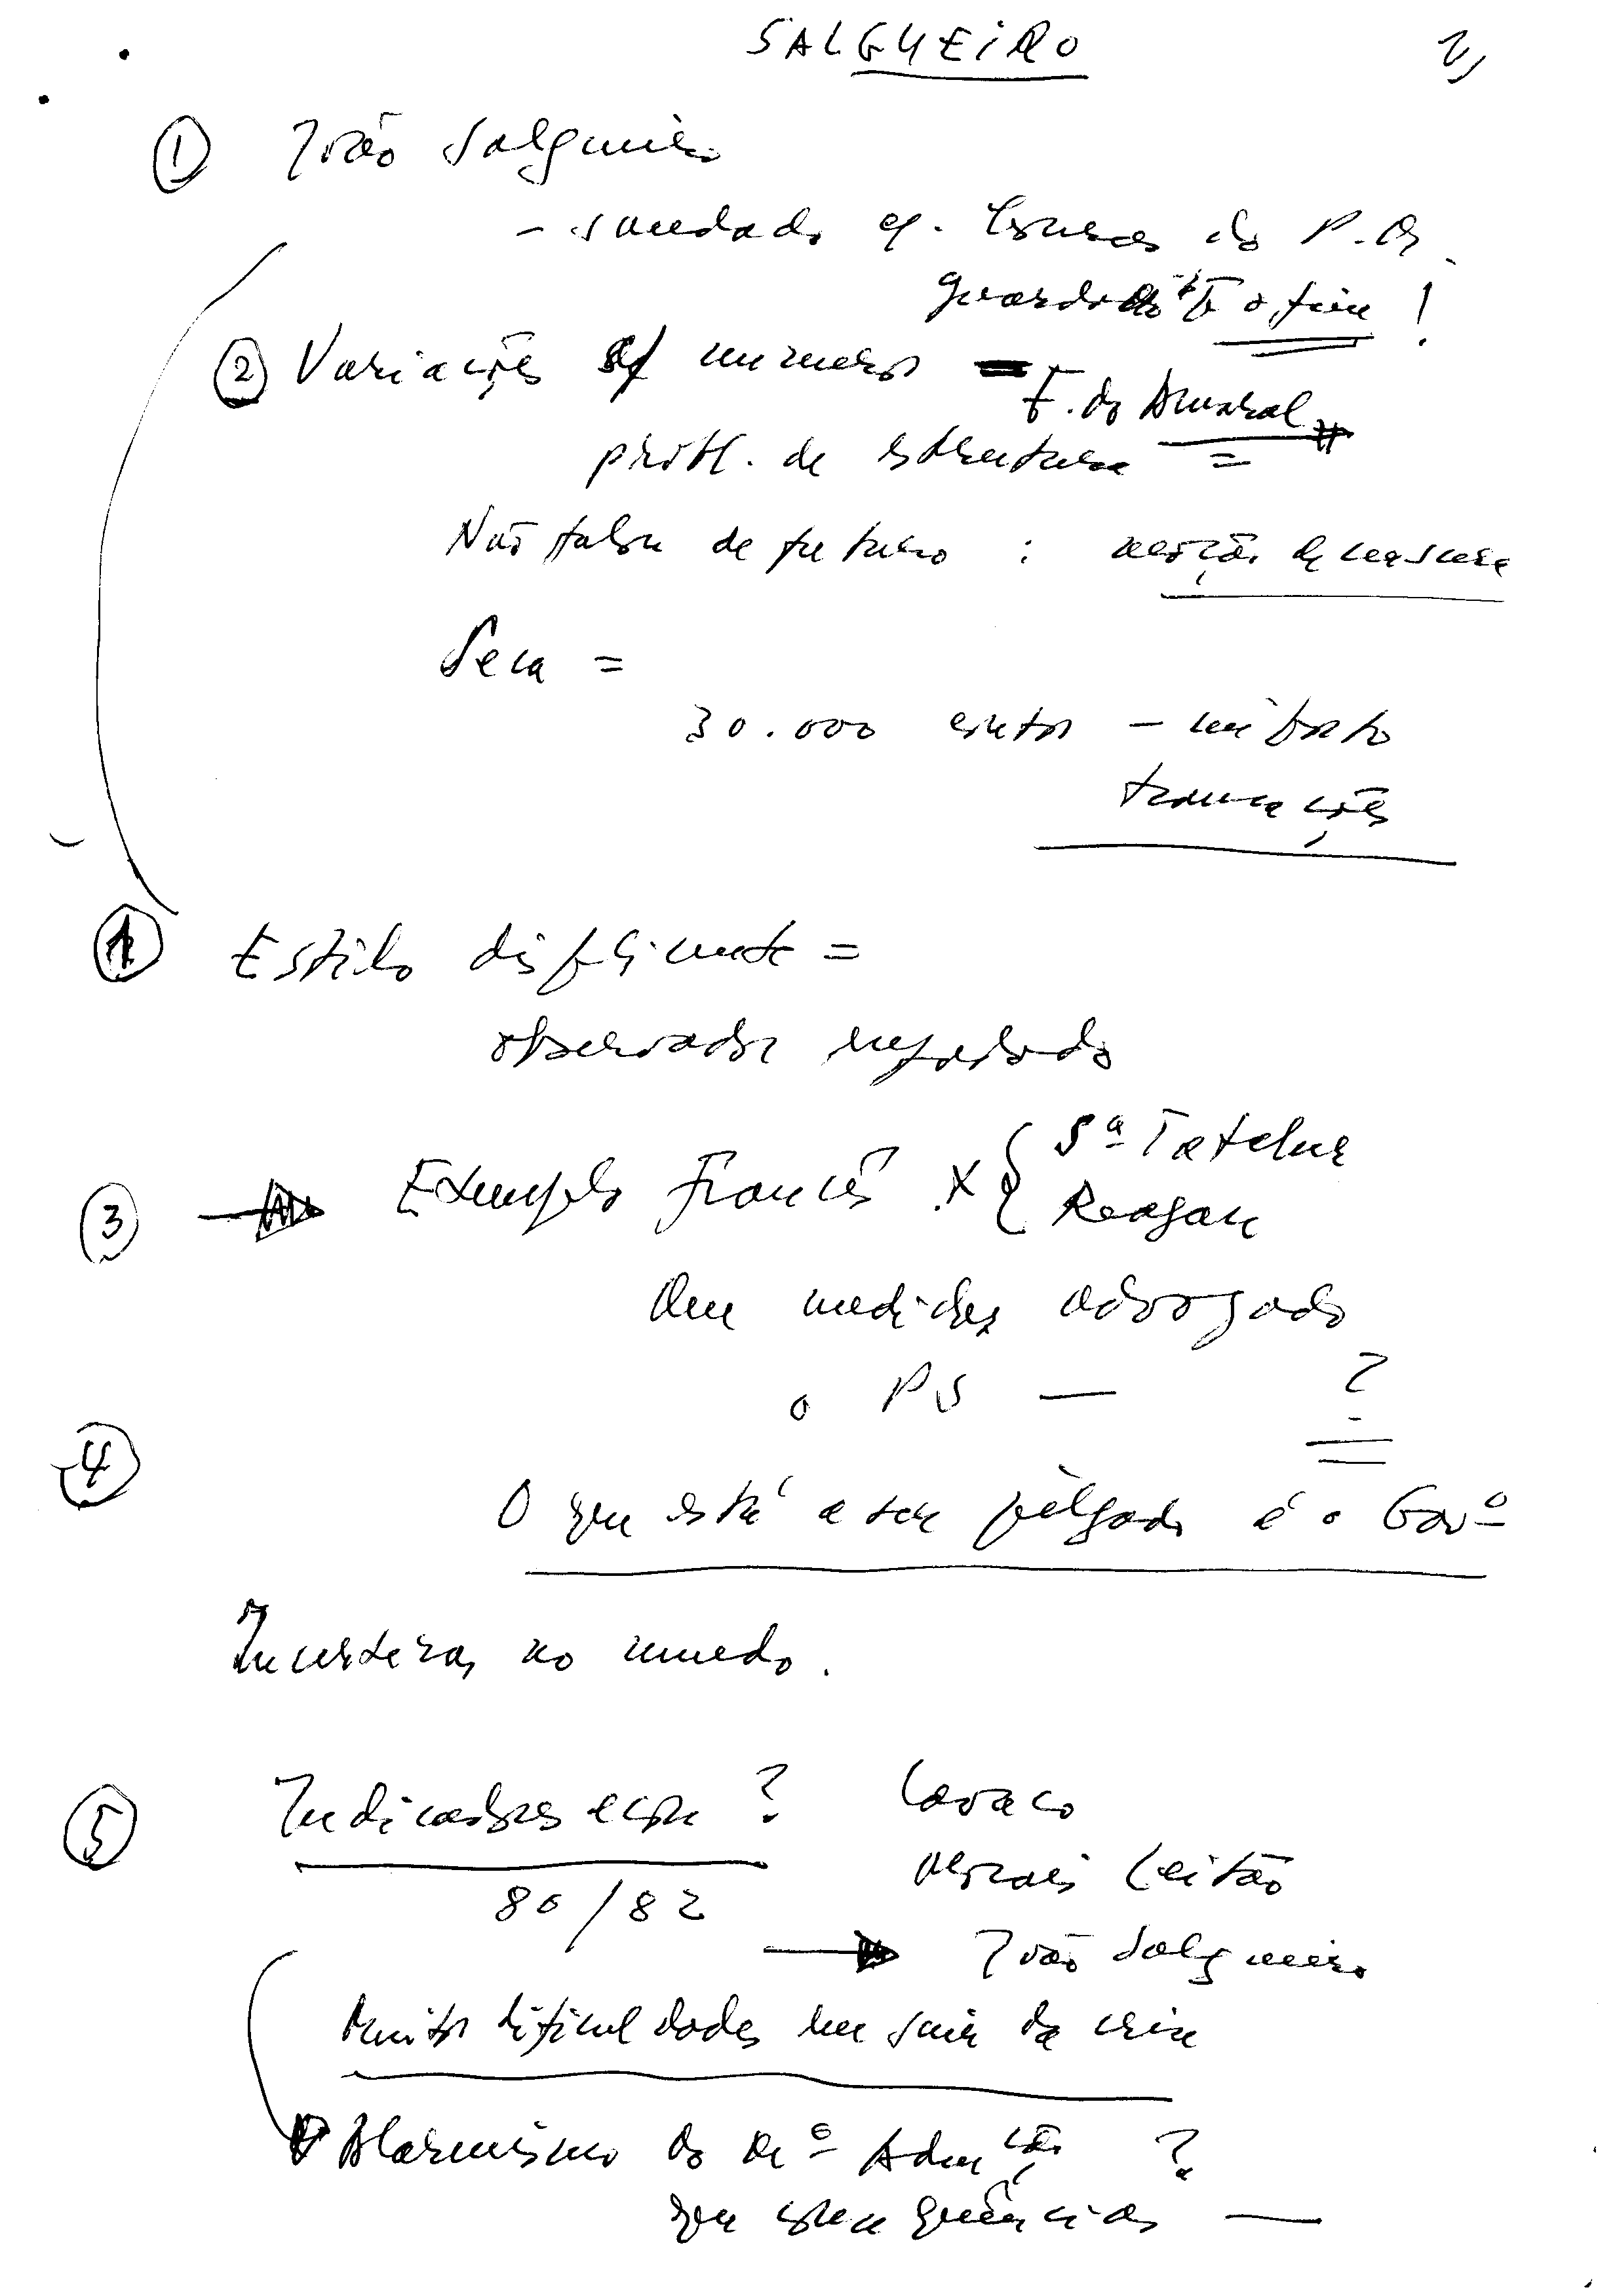 SALGUEIRO
2)
① João Salgueiro
- saudado
guardado o fim!
② Variações s/ números - F. do Amaral
probl. de estrutura =
Não falou de futuro : moção de censura
Seca =
30.000 contos -
① Estilo diferente =
observador
③ → Exemplo francês x { Sª Tatcher
Reagan
Que medidas advogado
o PS — ?
④
O que está a ser julgado é o Govº
Incertezas no mundo.
⑤ Indicadores econ ? Cavaco
80/82 Morais Leitão
→ João Salgueiro
Muitas dificuldades em sair da crise
Alarmismo do Mº Admção ?
que consequências —